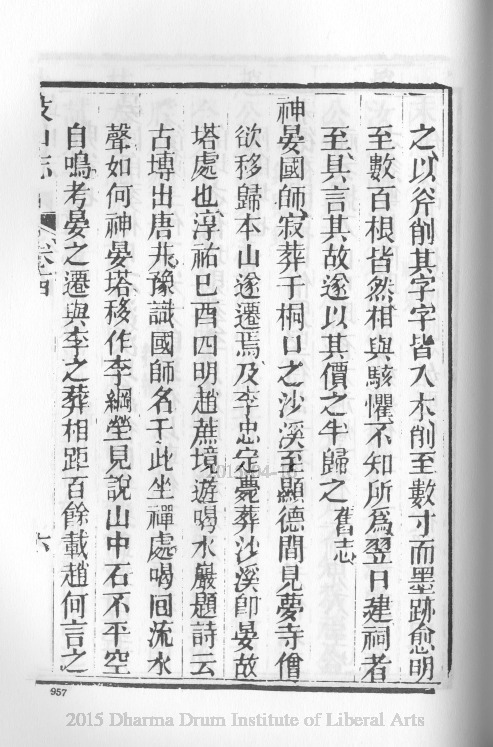 之以斧削其字字皆入木削至數寸而墨跡愈明
至數百根皆然相與駭懼不知所爲翌日建祠者
至具言其故遂以其價之半歸之舊志
神晏國師寂葬于桐口之沙溪至顯德間見夢寺僧
欲移歸本山遂遷焉及李忠定薨葬沙溪卽晏故
塔處也淳祐已酉四明趙蕉境遊喝水巖題詩云
古塼出唐井豫識國師名于此坐禪處喝囘流水
聲如何神晏塔移作李綱塋見說山中石不平空
自鳴考晏之遷與李之葬相距百餘載趙何言之
山志 卷十四 六
957
2015 Dharma Drum Institute of Liberal Arts